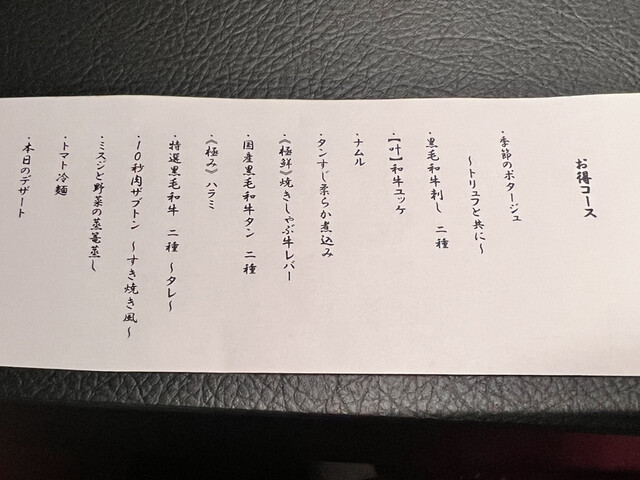 お得コース
・季節のポタージュ
～トリュフと共に～
・黒毛和牛刺し 二種
・【叶】和牛ユッケ
・ナムル
・タンすじ柔らか煮込み
・《極鮮》焼きしゃぶ牛レバー
・国産黒毛和牛タン 二種
・《極み》ハラミ
・特選黒毛和牛 二種 ～タレ～
・10秒肉ザブトン ～すき焼き風～
・ミスジと野菜の蒸篭蒸し
・トマト冷麺
・本日のデザート